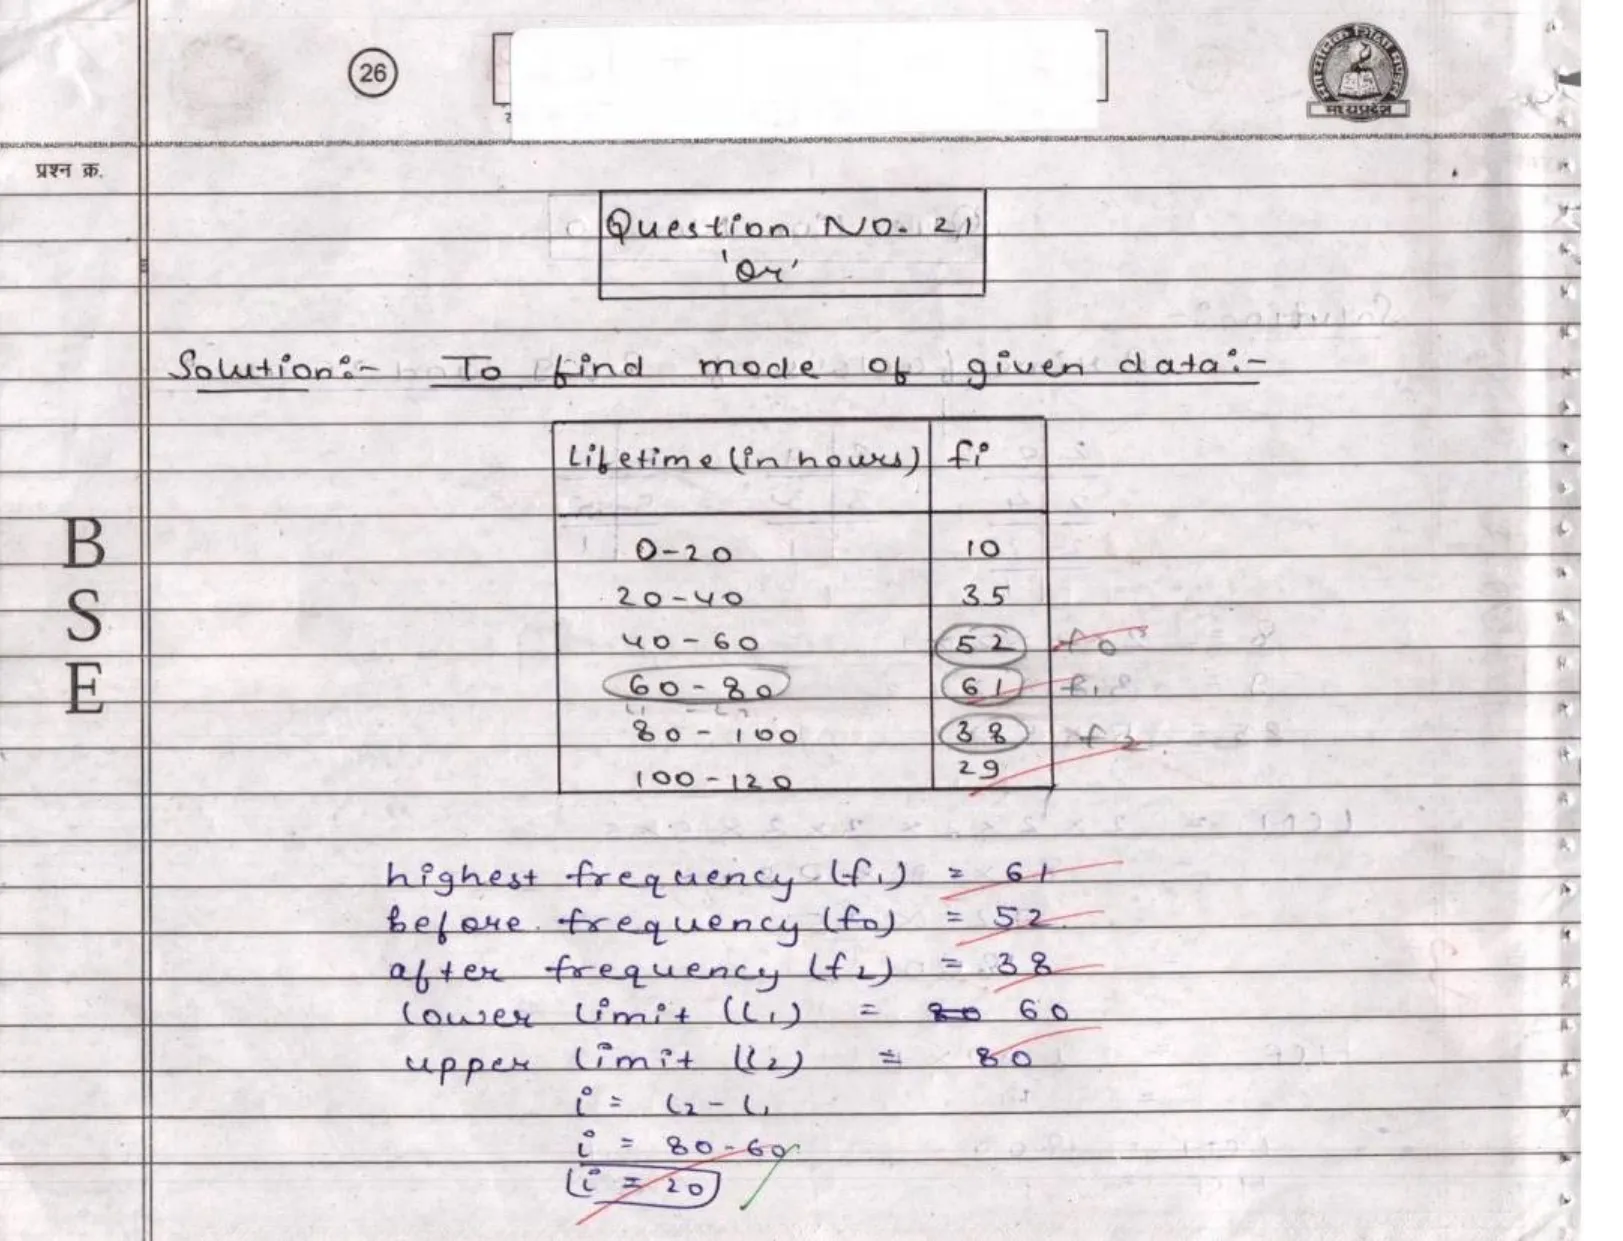 26
मध्यप्रदेश
प्रश्न क्र.
Question No. 21
'Or'
Solution:- To find mode of given data:-
Lifetime (in hours) fi
0-20 10
20-40 35
40-60 52 f0
60-80 61 f1
80-100 38 f2
100-120 29
B
S
E
highest frequency (f1) = 61
before frequency (f0) = 52
after frequency (f2) = 38
lower limit (l1) = 80 60
upper limit (l2) = 80
i = l2 - l1
i = 80-60
i = 20